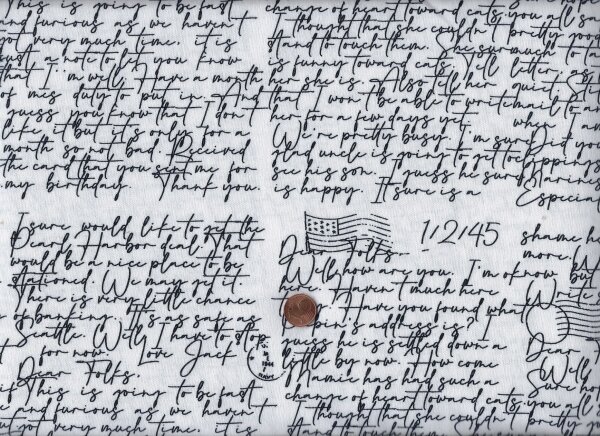 This is going to be fast
and furious as we haven't
got very much time. it is
just a note to let you know
that I'm well. Have a month
of mes duty to put in. And
guess you know that I don't
like it but it's only for a
month so not bad. Received
the card that you sent me for
my birthday. Thank you.
I sure would like to get the
Pearl Harbor deal. That
would be a nice place to be
stationed. We may get it.
There is very little chance
of banking. It's as safe as
Seattle. Well I have to stop
for now. Love Jack
Dear Folks.
This is going to be fast
and furious as we haven't
got very much time. it is
change of heart toward cats you all sa
I thought that she couldn't pretty good
stand to touch them. She sur much to
is funny toward cats. Tell letter. as
her she is. Also tell her quiet. Sti
that I won't be able to write mail to an
her for a few days yet. where a
We're pretty busy. I'm sure Did yo
glad uncle is going to get to oppings
see his son. I guess he sure Marines
is happy. It sure is a Especial
1/2/45
Dear Folks..
Well, how are you. I'm oknow
here. Haven't much here
Have you found what
pin's address is? I
guess he is settled down a
little by now. How come
Mamie has had such a
change of heart toward cats. you
I thought that she couldn't pretty
stand to touch them.
shame he
more.
but
Write s
Dear
Well
Sure ho